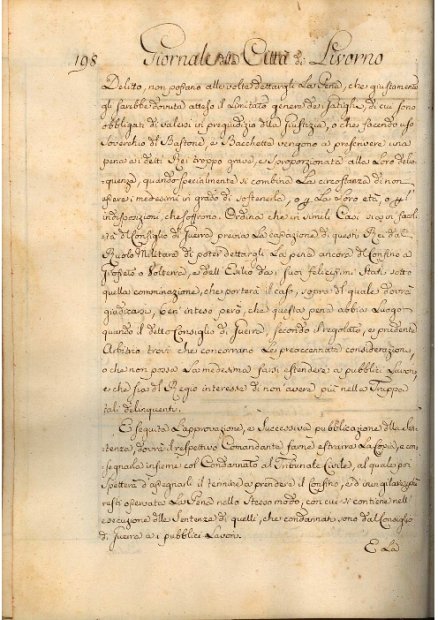 198 Giornale della Città di Livorno
Delitto, non possano alle volte dettargli La Pena, che giustamente
gli sarebbe dovuta atteso il Limitato genere de i fatighe, di cui sono
obbligati di valersi in pregiudizio della Giustizia, o che facendo uso
Soverchio di Bastone, e Bacchette vengono a prescrivere una
pena a i detti Rei troppo grave, e sproporzionata alla Loro delin-
quenza, quando specialmente si combina La circostanza di non
essere i medesimi in grado di sostenerla, o per La Loro età, o per
indisposizioni che soffrono. Ordina che in simili Casi sia in facol-
tà del Consiglio di Guerra previa La cassazione di questi Rei dal
Ruolo Militare di poter dettargli La pena ancora del Confino a
Grosseto o Volterra, e dell' Esilio da i suoi felicissimi Stati sotto
quella comminazione, che porterà il caso, sopra del quale dovrà
giudicarsi, ben inteso però, che questa pena abbia Luogo
quando il detto Consiglio di Guerra, secondo il regolato, e prudente
Arbitrio trovi che concorrano Le preaccennate considerazioni,
o che non possa La medesima farsi estendere a pubblici Lavori,
e che sia del Regio interesse di non avere più nella Truppa
tali delinquenti.
E seguita L'approvazione, e Successiva pubblicazione della Sen-
tenza, dovrà il respettivo Comandante farne estrarre La Copia, e con-
segnarla insieme col Condannato al Tribunale Civile, al quale poi
Spetterà d'assegnarli il termine a prendere il Confino, e d'invigilare, che
resti osservata La Pena nello Stesso modo, con cui si contiene nell'
esecuzione delle Sentenze di quelli, che condannati sono dal Consiglio
di Guerra a i pubblici Lavori.
E La